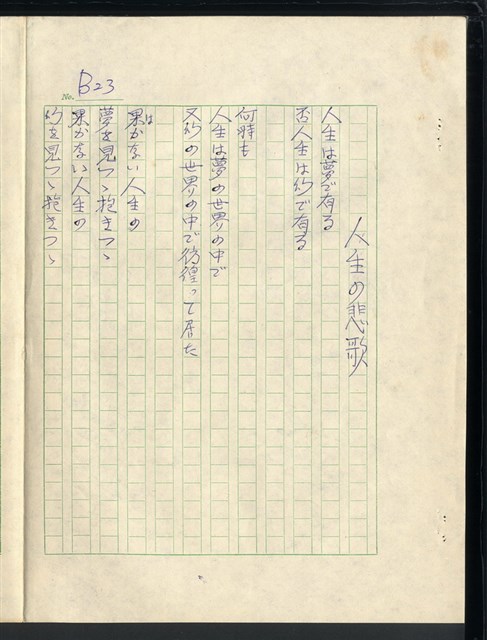 No. B23
人生の悲歌
人生は夢で有る
否人生は幻で有る
何時も
人生は夢の世界の中で
又幻の世界の中で彷徨って居た
果かない人生の
は
夢を見つゝ抱きつゝ
果かない人生の
幻を見つゝ抱きつゝ